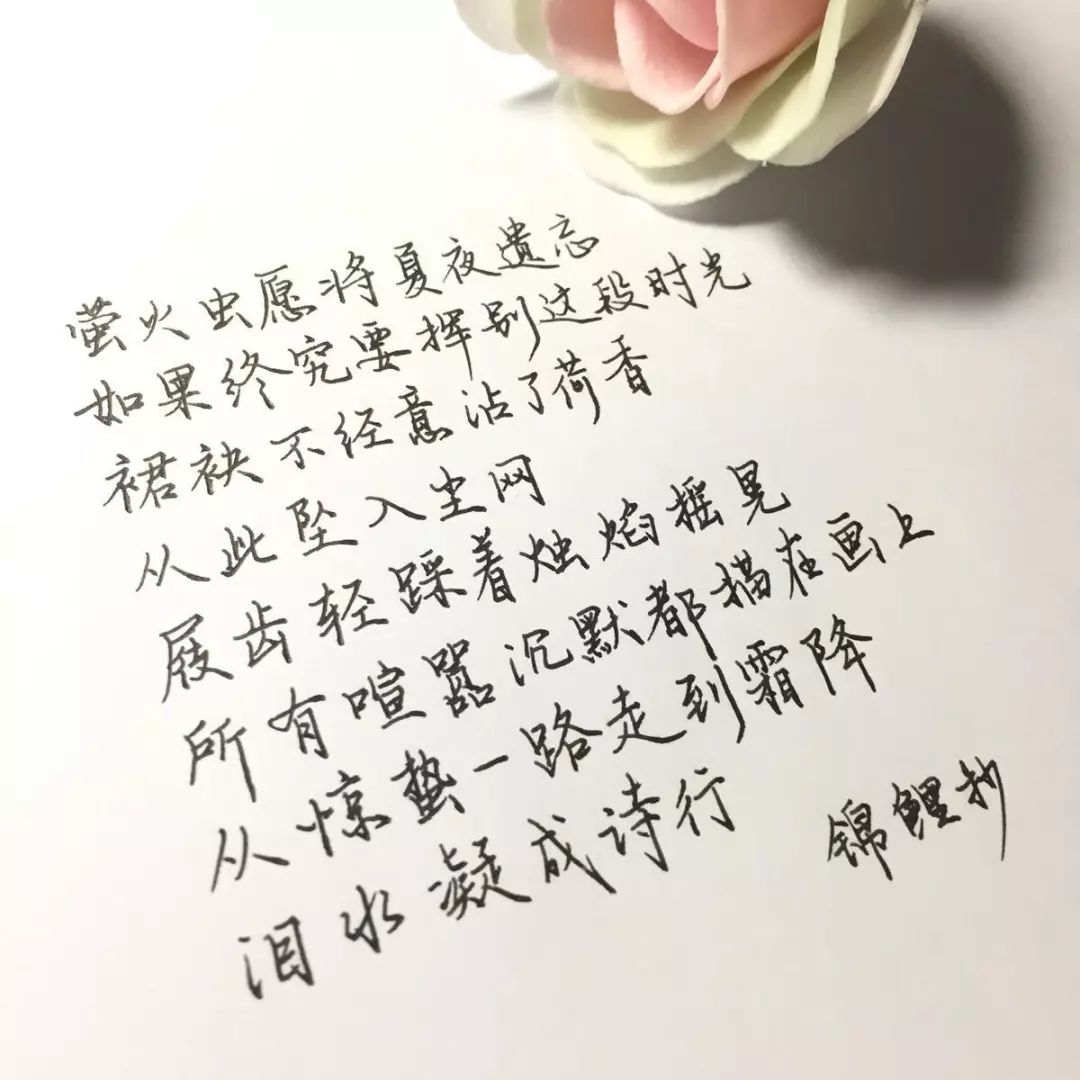 萤火虫愿将夏夜遗忘
如果终究要挥别这段时光
裙袂不经意沾了荷香
从此坠入尘网
屐齿轻踩着烛焰摇晃
所有喧嚣沉默都描在画上
从惊蛰一路走到霜降
泪水凝成诗行
锦鲤抄